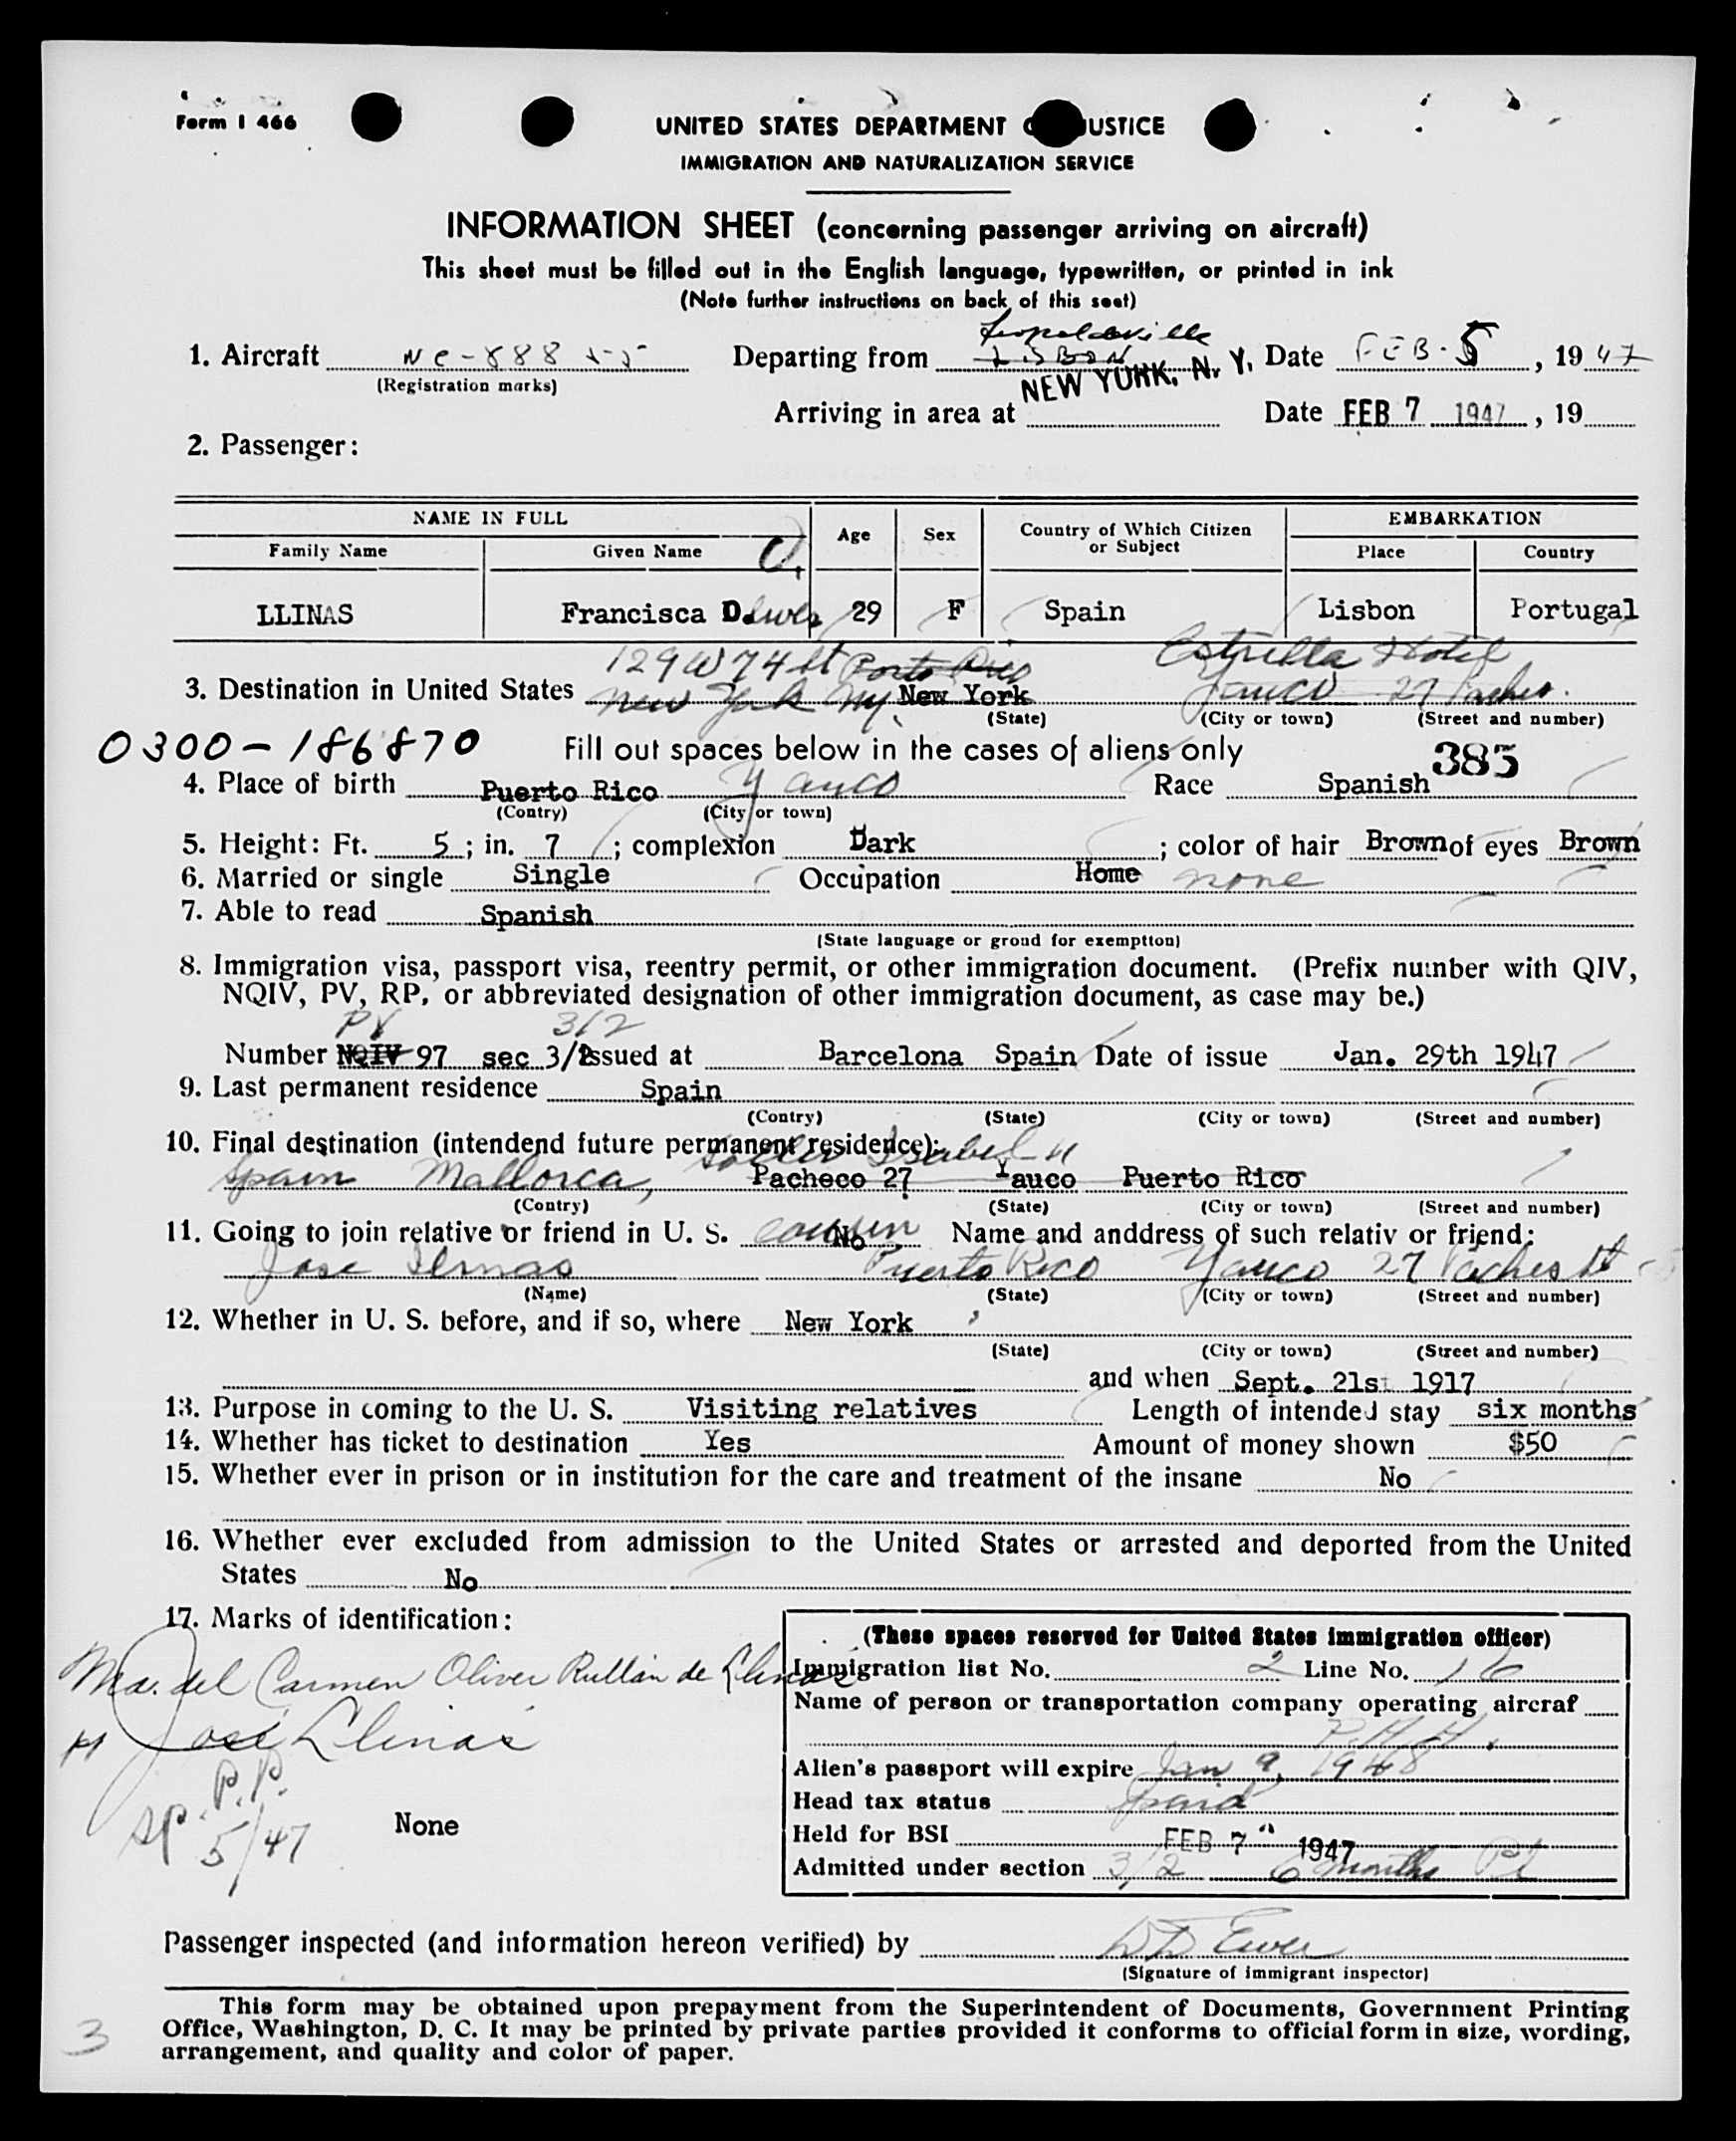 Form I 466
UNITED STATES DEPARTMENT JUSTICE
IMMIGRATION AND NATURALIZATION SERVICE
INFORMATION SHEET (concerning passenger arriving on aircraft)
This sheet must be filled out in the English language, typewritten, or printed in ink
(Note further instructions on back of this seet)
Leopoldville
1. Aircraft NC-888 Departing from LISBON Date FEB. 5, 1947
(Registration marks)
Arriving in area at NEW YORK, N. Y. Date FEB 7 1947, 19
2. Passenger:
NAME IN FULL Age Sex Country of Which Citizen or Subject EMBARKATION
Family Name Given Name Place Country
LLINAS Francisca 29 F Spain Lisbon Portugal
129 W 74 St Porto Rico Estrella Hotel
3. Destination in United States New York NY New York Yauco 27
(State) (City or town) (Street and number)
0300-186870 Fill out spaces below in the cases of aliens only 385
4. Place of birth Puerto Rico Yauco Race Spanish
(Contry) (City or town)
5. Height: Ft. 5; in. 7; complexion Dark; color of hair Brown of eyes Brown
6. Married or single Single Occupation Home none
7. Able to read Spanish
(State language or groud for exemption)
8. Immigration visa, passport visa, reentry permit, or other immigration document. (Prefix number with QIV,
NQIV, PV, RP, or abbreviated designation of other immigration document, as case may be.)
PV 3/2
Number NQIV 97 sec 3/2 Issued at Barcelona Spain Date of issue Jan. 29th 1947
9. Last permanent residence Spain
(Contry) (State) (City or town) (Street and number)
10. Final destination (intendend future permanent residence):
Spain Mallorca, Pacheco 27 Yauco Puerto Rico
(Contry) (State) (City or town) (Street and number)
11. Going to join relative or friend in U. S. No cousin Name and anddress of such relativ or friend:
Jose Llinas Puerto Rico Yauco 27
(Name) (State) (City or town) (Street and number)
12. Whether in U. S. before, and if so, where New York
(State) (City or town) (Street and number)
and when Sept. 21st 1917
13. Purpose in coming to the U. S. Visiting relatives Length of intended stay six months
14. Whether has ticket to destination Yes Amount of money shown $50
15. Whether ever in prison or in institution for the care and treatment of the insane No
16. Whether ever excluded from admission to the United States or arrested and deported from the United
States No
17. Marks of identification:
Ma. del Carmen Oliver Rullán de Llinás
José Llinás
P.P.
sp. 5/47
None
(These spaces reserved for United States immigration officer)
Immigration list No. 2 Line No. 16
Name of person or transportation company operating aircraf
Alien's passport will expire Jan 9, 1948
Head tax status paid
Held for BSI FEB 7 1947
Admitted under section 3/2 6 months
Passenger inspected (and information hereon verified) by
(Signature of immigrant inspector)
This form may be obtained upon prepayment from the Superintendent of Documents, Government Printing
Office, Washington, D. C. It may be printed by private parties provided it conforms to official form in size, wording,
arrangement, and quality and color of paper.
3